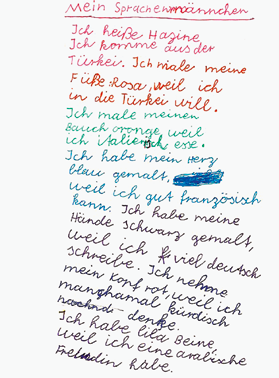 Mein Sprachenmännchen
Ich heiße Hazine
Ich komme aus der
Türkei. Ich male meine
Füße: Rosa, weil ich
in die Türkei will.
Ich male meinen
Bauch orange, weil
ich italienisch esse.
Ich habe mein Herz
blau gemalt,
weil ich gut französisch
kann. Ich habe meine
Hände Schwarz gemalt,
weil ich viel deutsch
schreibe. Ich nehme
mein Kopf rot, weil ich
manghamal kürdisch
denke.
Ich habe lila Beine,
weil ich eine arabische
Freundin habe.